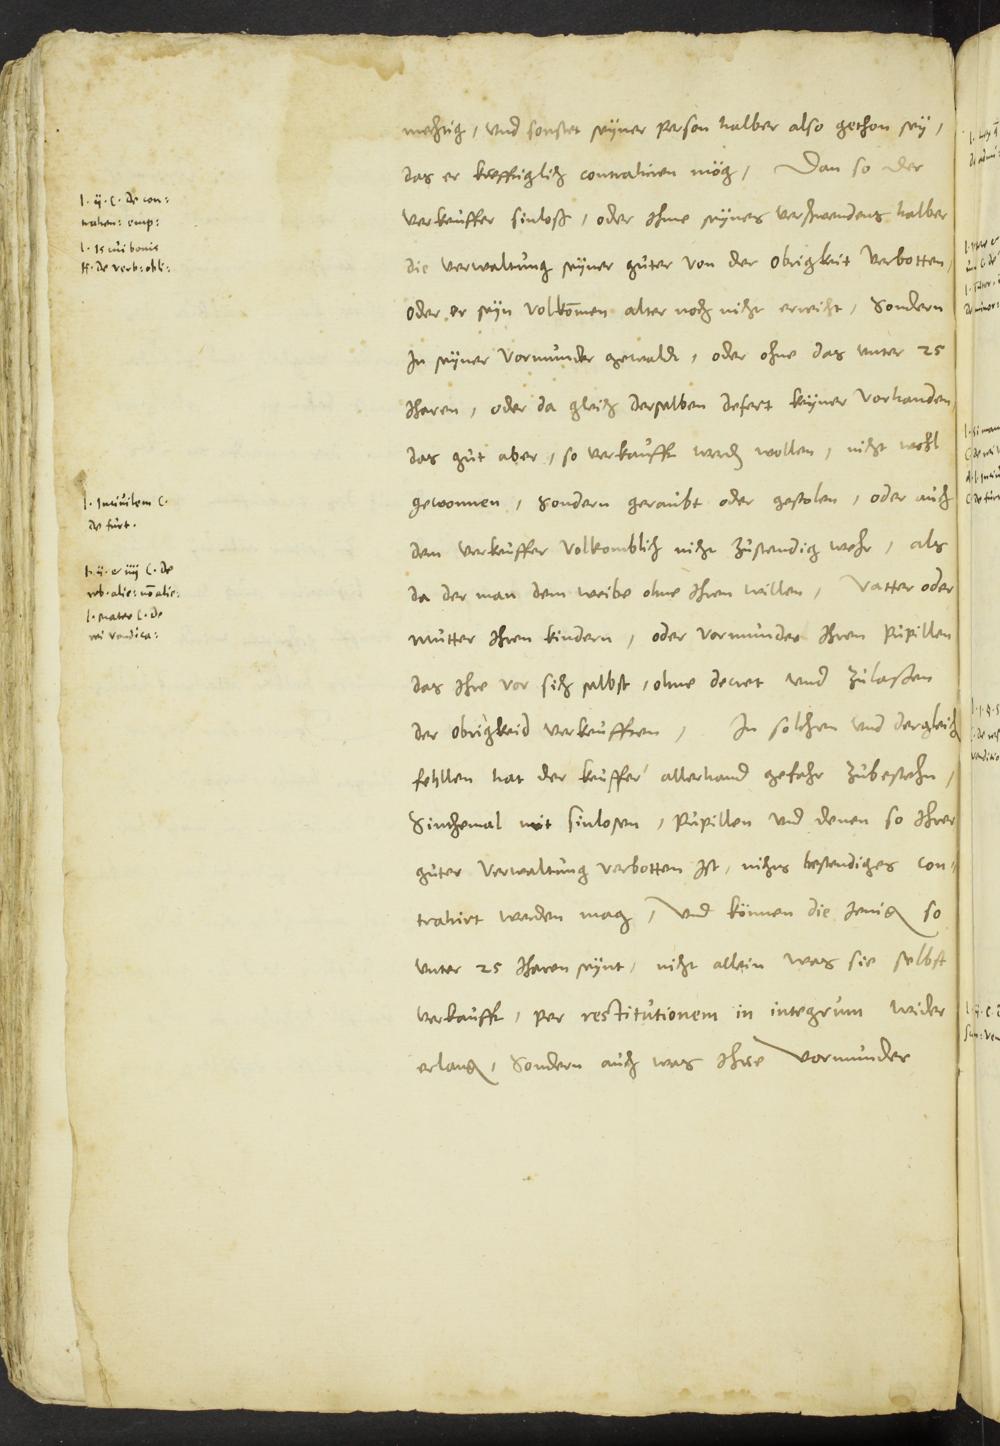 mechtig, und sonsten seÿner person halber also gethon seÿ,
das er krefftiglich contrahiren mög, Dan so der
verkeuffer sinloß, oder ihme seÿnes verschwendens halber
die verwaltung seÿner guter von der obrigkeit verbotten,
oder er seÿn volkom̄en alter noch nicht erreicht, Sondern
in seÿner vormunder gewaldt, oder ohne das unter 25
iharen, oder da gleich derselben defect keÿner vorhanden,
das gut aber, so verkaufft werden wollen, nicht wohl
gewonnen, Sondern geraubt oder gestolen, oder auch
dem verkeuffer volkomblich nicht zustendig wehr, als
da der man dem weibe ohne ihren willen, Vatter oder
mutter ihren kindern, oder vormunder ihren pupillen
das ihre vor sich selbst, ohne decret und zulassen
der obrigkeid verkeufften, In solchen und dergleich
fehllen hat der keuffer allerhand gefahr zubestehn,
Sinthemal mit sinlosen, pupillen und denen so ihrer
guter verwaltung verbotten ist, nichts bestendiges con-
trahirt werden mag, und können die ienigen so
unter 25 iharen seÿnt, nicht allein was sie selbst
verkaufft, per restitutionem in integrum wider
erlangen, Sondern auch was ihre vormunder
l. ij. C. de con:
trahen: emp:
l. is cui bonis
ff. de verb: obli:
l. Incivilem C.
de furt.
l. ij. et iiij C. de
reb. alie: nō alie:
l. mater C. de
rei vendica: